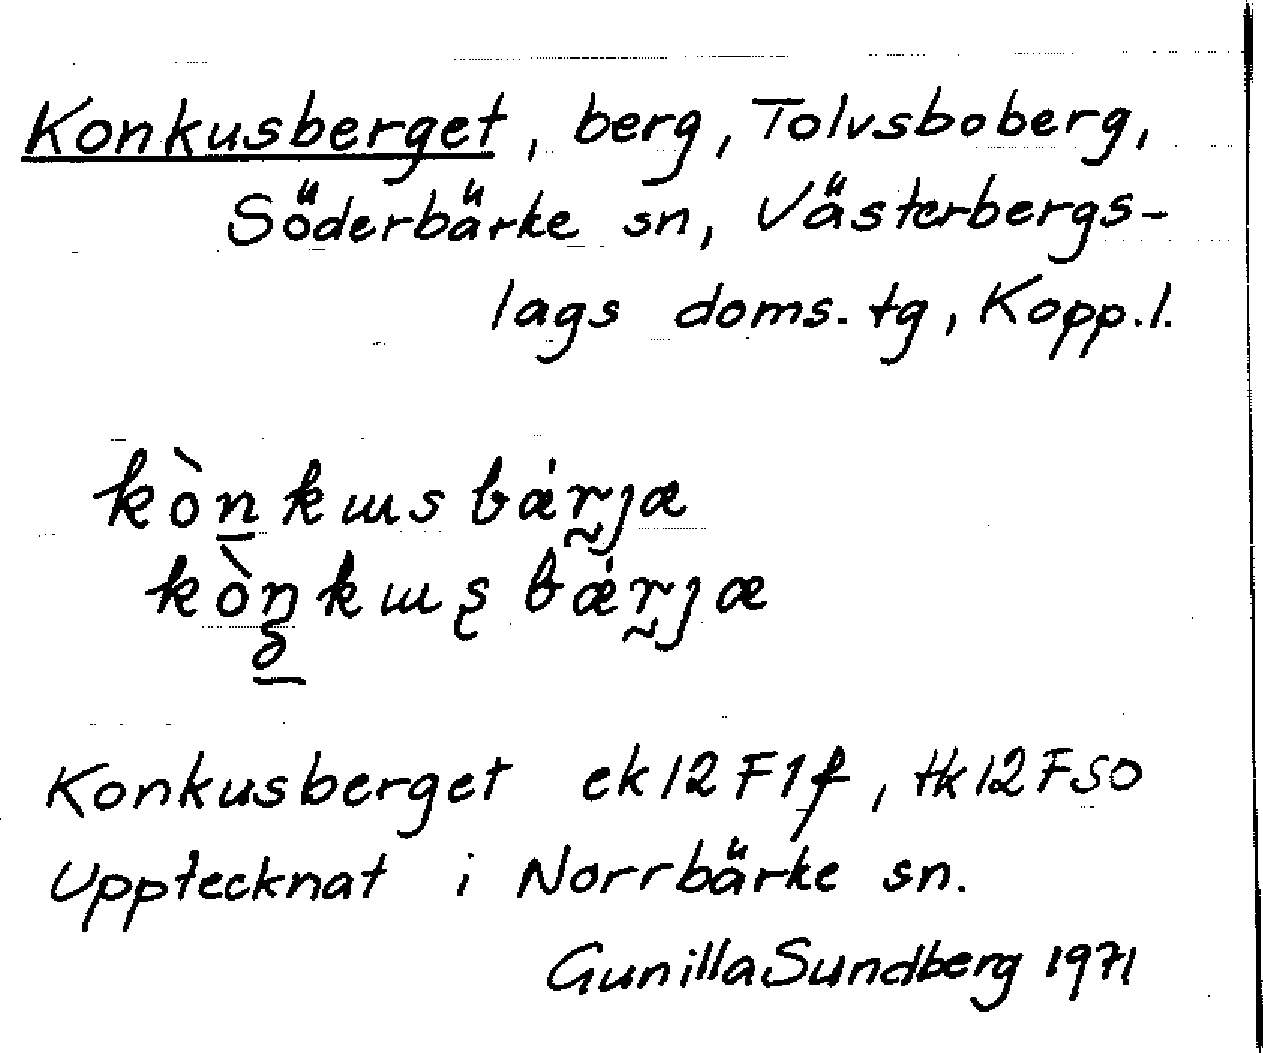 Konkusberget, berg, Tolvsboberg,
Söderbärke sn, Västerbergs-
lags doms. tg, Kopp.l.
kòn̲kɯsbá̇r̰ȷæ
kòn̲kɯʂbǽr̰ȷæ
Konkusberget ek12F1f, tk12FSO
Upptecknat i Norrbärke sn.
Gunilla Sundberg 1971